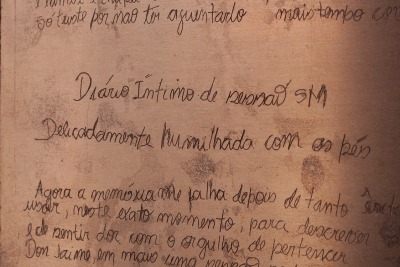 só triste por não ter aguentado mais tempo com
Diário Íntimo de sessão SM
Delicadamente humilhada com os pés
Agora a memória me falha depois de tanto
usar, neste exato momento, para descrever
e de sentir dor com o orgulho de pertencer
Don Jaime, em mais uma